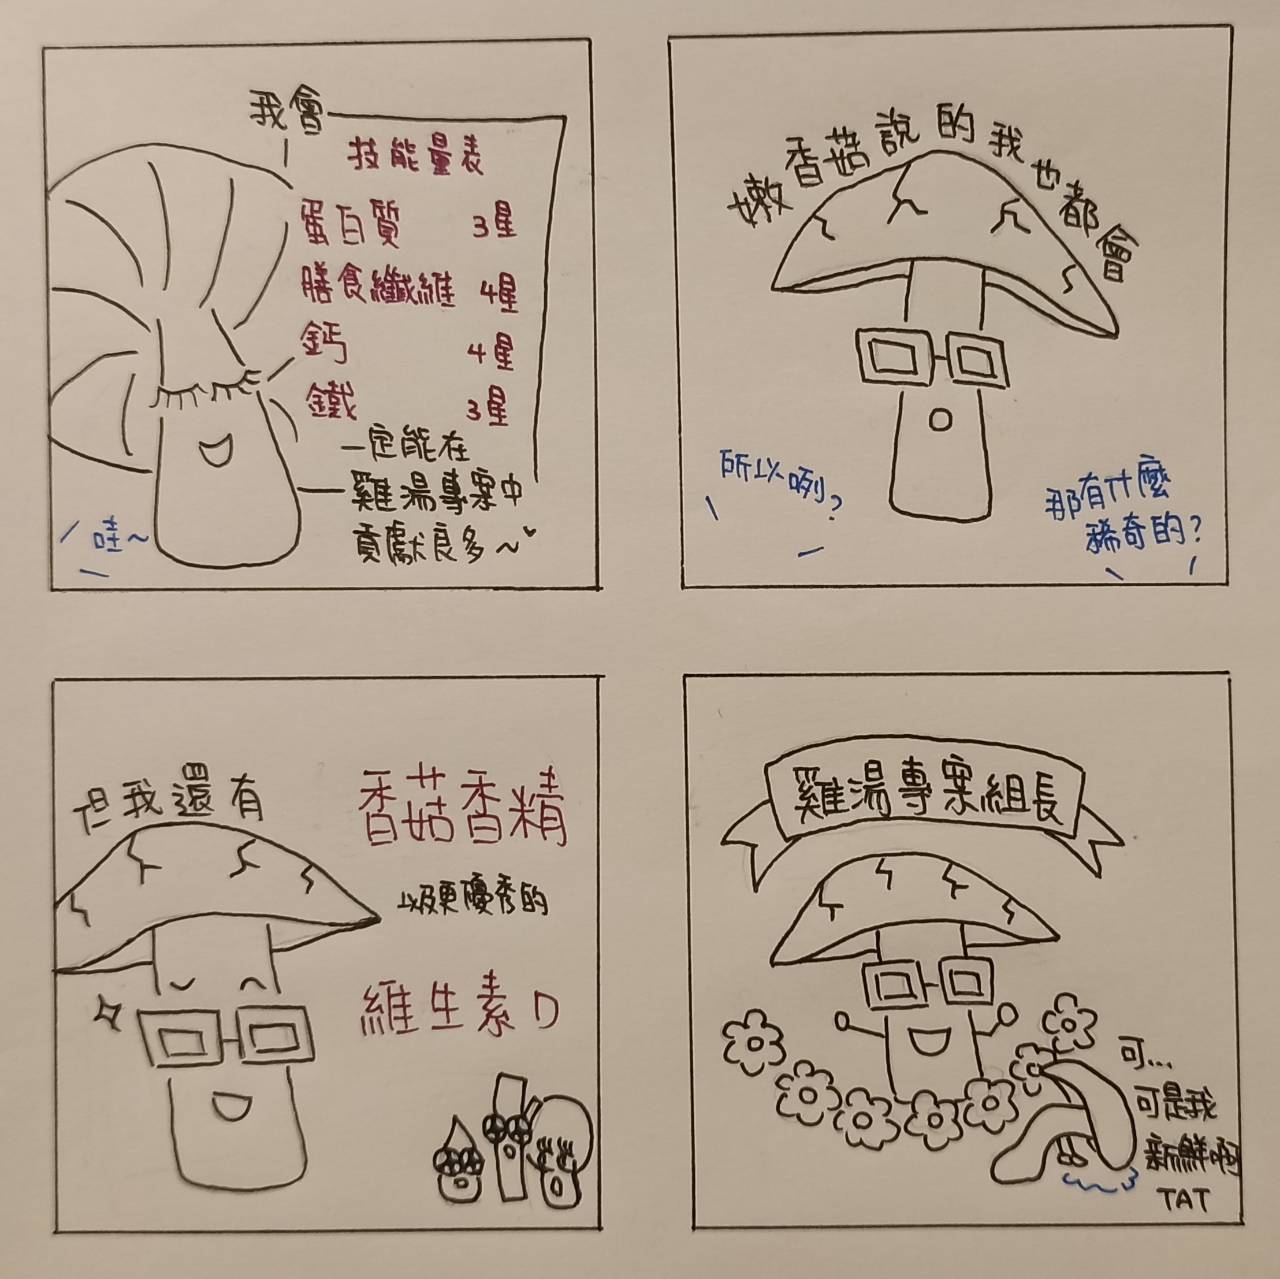 我會
技能量表
蛋白質 3星
膳食纖維 4星
鈣 4星
鐵 3星
一定能在
雞湯專案中
貢獻良多~
哇~
嫩香菇說的我也都會
所以咧?
那有什麼
稀奇的?
但我還有
香菇香精
以及更優秀的
維生素D
雞湯專案組長
可...
可是我
新鮮啊
TAT